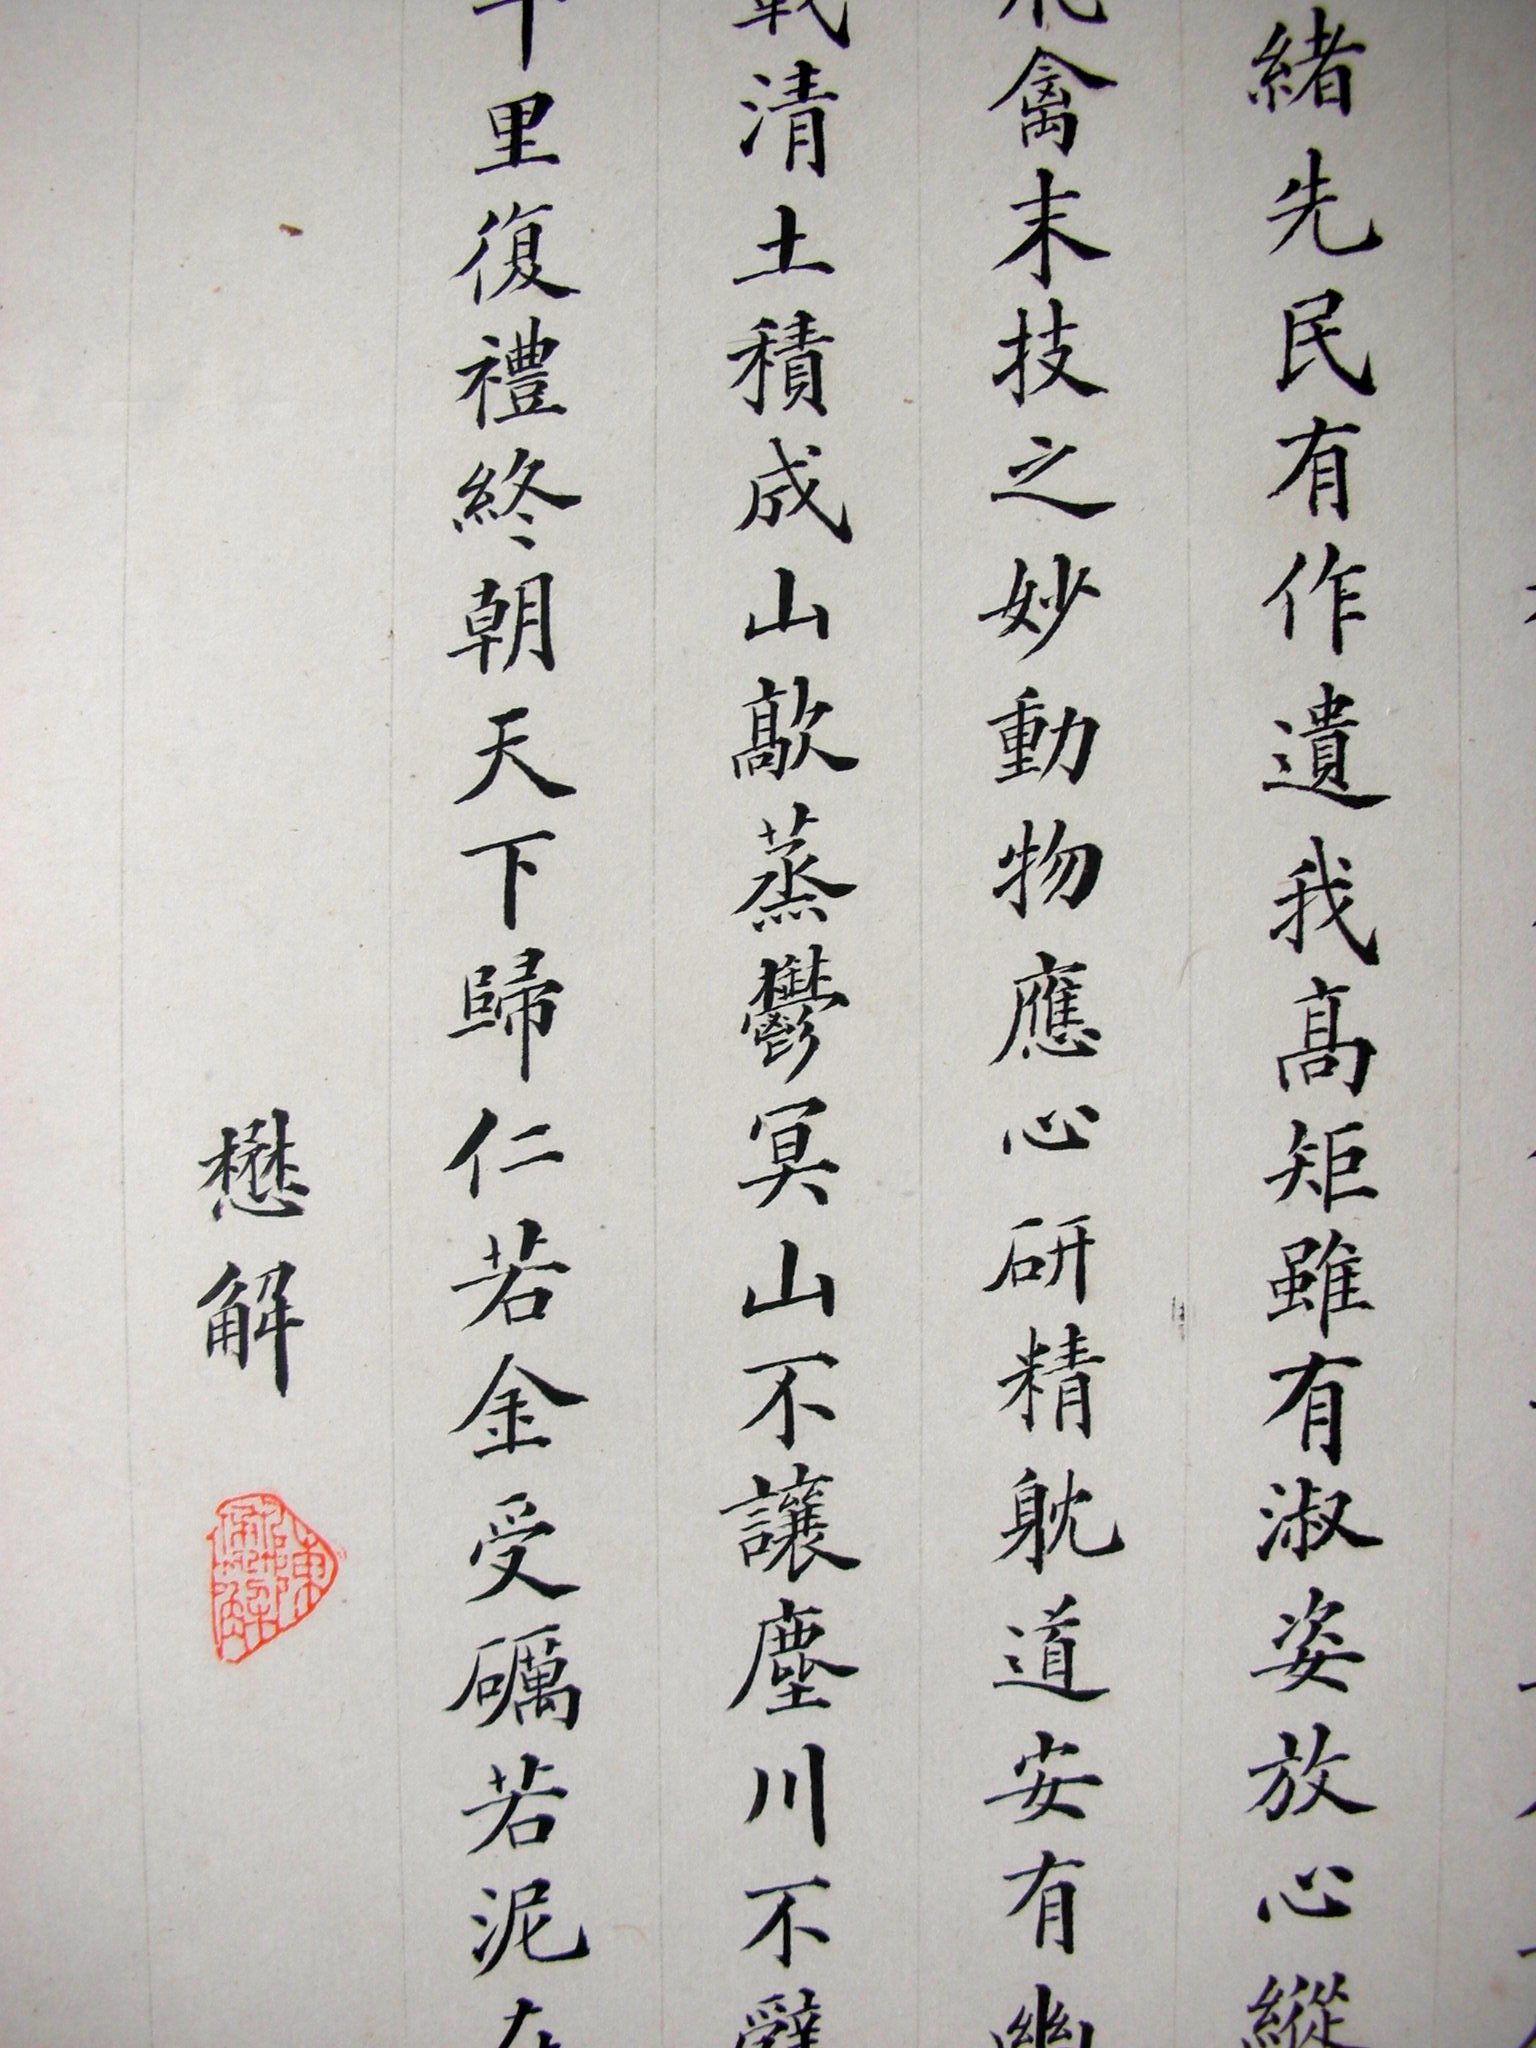 緒先民有作遺我高矩雖有淑姿放心縱
飛禽末技之妙動物應心研精躭道安有幽
載清土積成山歊蒸鬱冥山不讓塵川不辭
千里復禮終朝天下歸仁若金受礪若泥在
懋解
陳